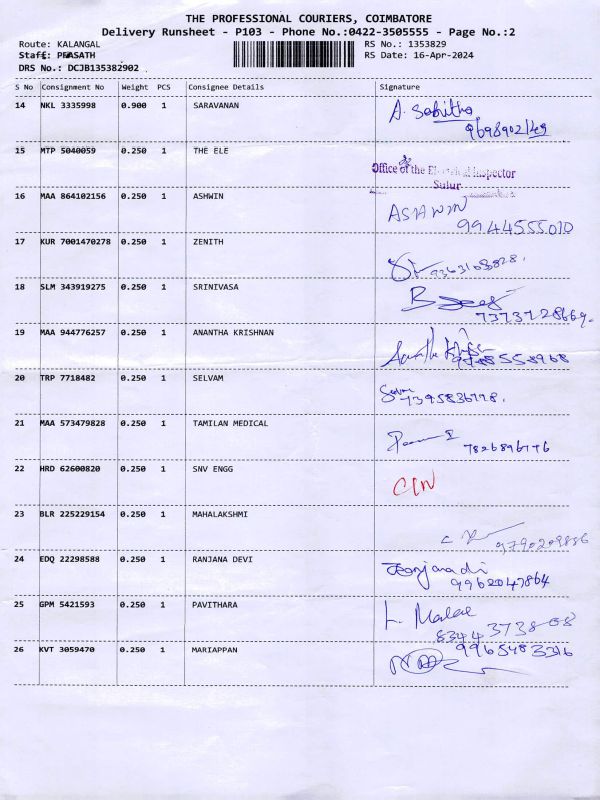 THE PROFESSIONAL COURIERS, COIMBATORE
Delivery Runsheet - P103 - Phone No.:0422-3505555 - Page No.:2
Route: KALANGAL RS No.: 1353829
Staff: PRASATH RS Date: 16-Apr-2024
DRS No.: DCJB135382902
S No Consignment No Weight PCS Consignee Details Signature
14 NKL 3335998 0.900 1 SARAVANAN A. Sabitha
15 MTP 5040059 0.250 1 THE ELE
Office of the Electrical Inspector
Sulur
16 MAA 864102156 0.250 1 ASHWIN ASHWIN
9944555010
17 KUR 7001470278 0.250 1 ZENITH
9363108828.
18 SLM 343919275 0.250 1 SRINIVASA
7373728669.
19 MAA 944776257 0.250 1 ANANTHA KRISHNAN
20 TRP 7718482 0.250 1 SELVAM
21 MAA 573479828 0.250 1 TAMILAN MEDICAL
7826896776
22 HRD 62600820 0.250 1 SNV ENGG
23 BLR 225229154 0.250 1 MAHALAKSHMI
9790209886
24 EDQ 22298588 0.250 1 RANJANA DEVI
9962047864
25 GPM 5421593 0.250 1 PAVITHARA
26 KVT 3059470 0.250 1 MARIAPPAN 9965483316